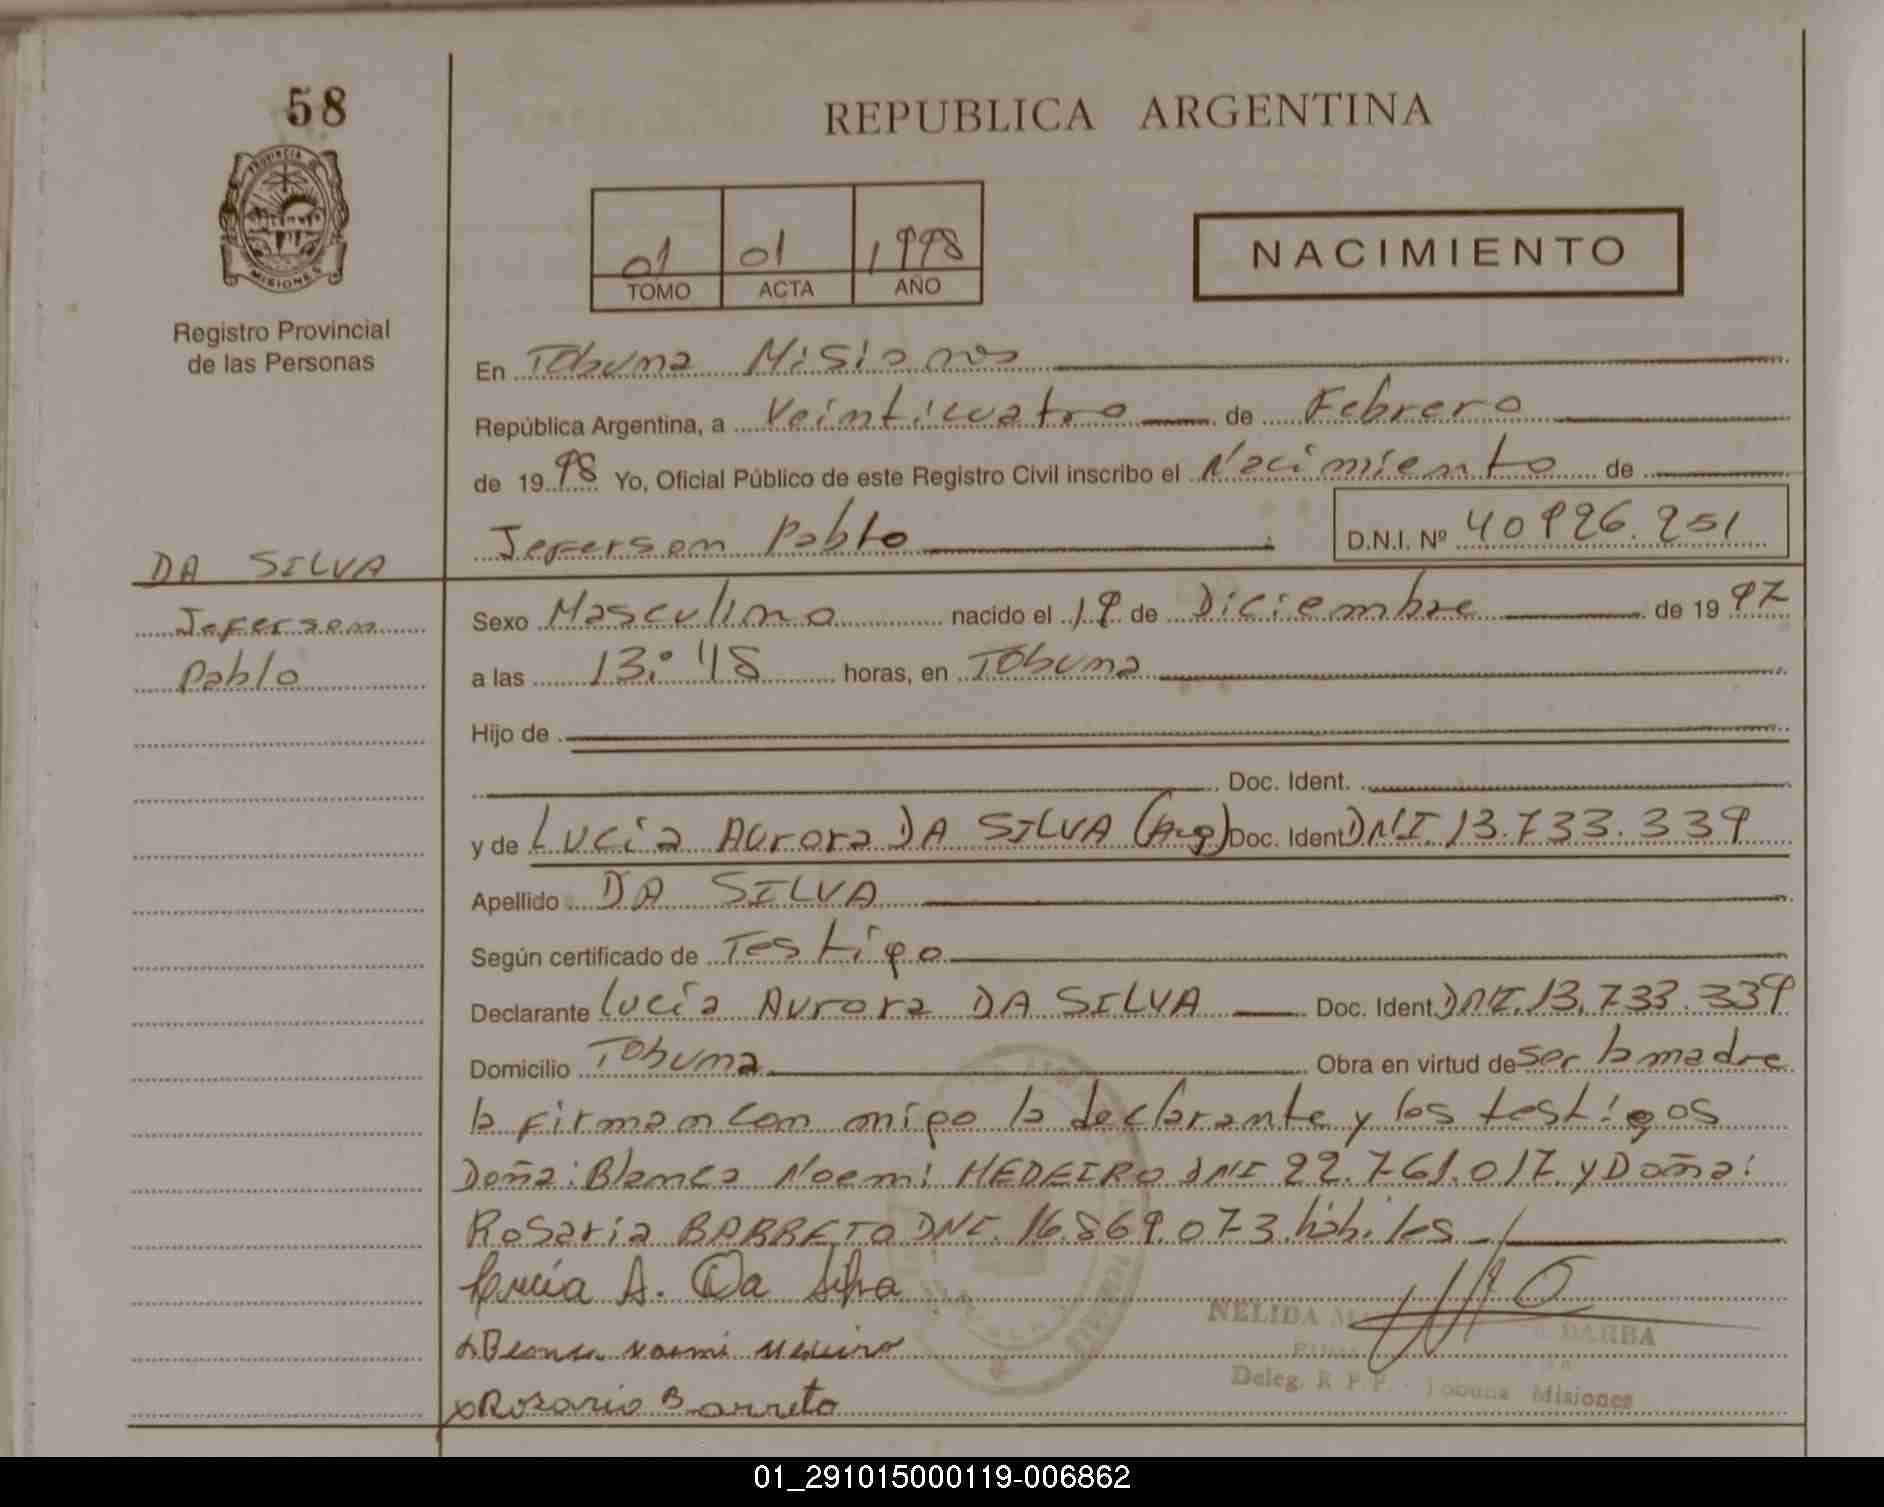 58
REPUBLICA ARGENTINA
PROVINCIA DE
MISIONES
Registro Provincial
de las Personas
01 01 1998
TOMO ACTA AÑO
NACIMIENTO
En Tobuna Misiones
República Argentina, a Veinticuatro de Febrero
de 1998 Yo, Oficial Público de este Registro Civil inscribo el Nacimiento de
Jeferson Pablo D.N.I. Nº 40926.251
DA SILVA
Jeferson
Pablo
Sexo Masculino nacido el 19 de Diciembre de 1997
a las 13:45 horas, en Tobuna
Hijo de
Doc. Ident.
y de Lucía Aurora DA SILVA (Arg) Doc. Ident DNI.13.733.339
Apellido DA SILVA
Según certificado de Testigo
Declarante Lucía Aurora DA SILVA Doc. Ident. DNI.13.733.339
Domicilio Tobuna Obra en virtud de ser la madre
la firman con migo la declarante y los testigos
Doña: Blanca Noemi MEDEIRO DNI 22.761.017 y Doña:
Rosaria BARRETO DNI. 16.869.073. hábiles
Lucía A. Da Silva
Blanca Noemi Medeiro
Rosario Barreto
NELIDA DARBA
Deleg. R P.P. - Tobuna Misiones
01_291015000119-006862